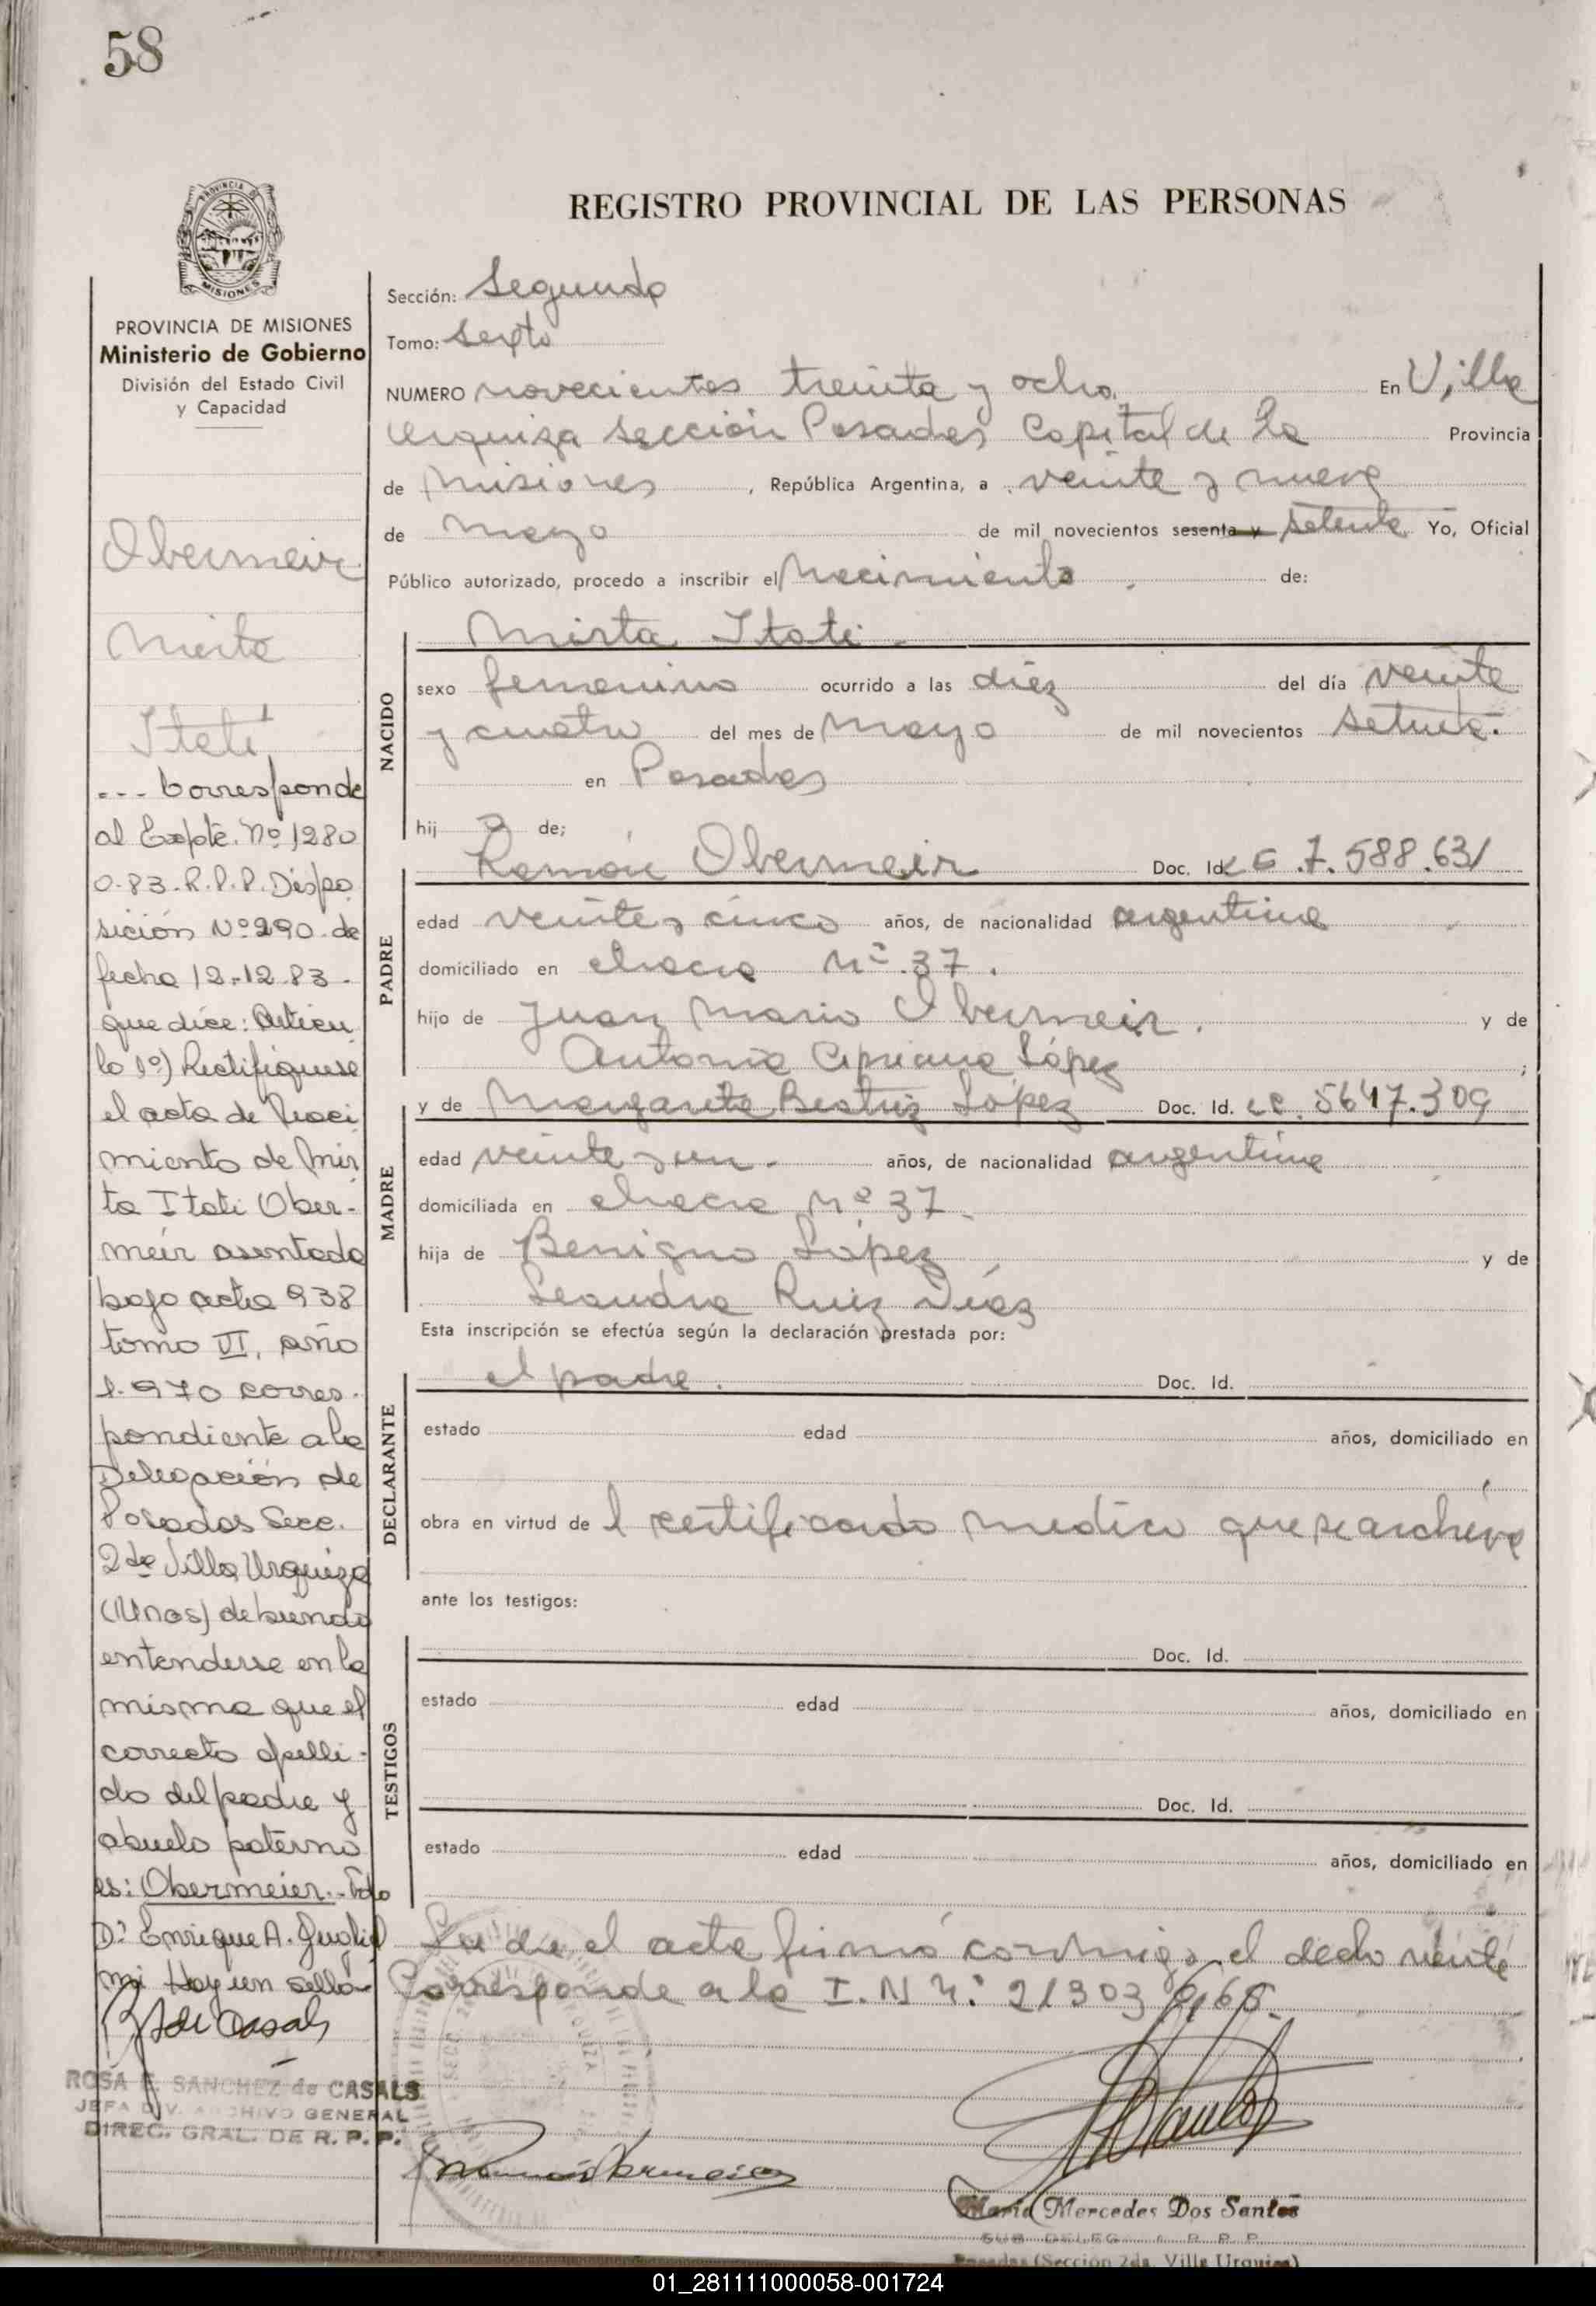 58
REGISTRO PROVINCIAL DE LAS PERSONAS
MISIONES
PROVINCIA DE MISIONES
Ministerio de Gobierno
División del Estado Civil
y Capacidad
Obermeir
Mirta
Itatí
--- Corresponde
al Expte. Nº 1280
0-83-R.P.P. Dispo
sición Nº 290 de
fecha 12-12-83-
que dice: Artícu
lo 1º) Rectifíquese
el acta de Naci
miento de Mir
ta Itati Ober-
meir asentada
bajo acta 938
tomo VI, año
1.970 corres-
pondiente a la
Delegación de
Posadas Secc.
2da Villa Urquiza
(Mnes) debiendo
entenderse en la
misma que el
correcto apelli-
do del padre y
abuelo paterno
es: Obermeier.- Fdo
Dr. Enrique A.
mi Hay un sello-
ROSA E. SANCHEZ de CASALS
JEFA DIV. ARCHIVO GENERAL
DIREC. GRAL. DE R. P. P.
Sección: Segunda
Tomo: Sexto
NUMERO novecientos treinta y ocho. En Villa
Urquiza Sección Posadas Capital de la Provincia
de Misiones, República Argentina, a veinte y nueve
de Mayo de mil novecientos sesenta y setenta Yo, Oficial
Público autorizado, procedo a inscribir el Nacimiento de:
NACIDO
Mirta Itati
sexo femenino ocurrido a las diez del día veinte
y cuatro del mes de Mayo de mil novecientos setenta.
en Posadas
hij a de;
PADRE
Ramón Obermeir Doc. Id. 7.588.631
edad veinte y cinco años, de nacionalidad argentina
domiciliado en chacra Nº 37.
hijo de Juan Mario Obermeir. y de
Antonia Cipriana López ;
MADRE
y de Margarita Beatriz López Doc. Id. LC. 5647.309
edad veinte y un. años, de nacionalidad argentina
domiciliada en chacra Nº 37.
hija de Benigno López y de
Leandra Ruiz Díaz
Esta inscripción se efectúa según la declaración prestada por:
DECLARANTE
el padre. Doc. Id.
estado edad años, domiciliado en
obra en virtud de l certificado medico que se archiva
ante los testigos:
TESTIGOS
Doc. Id.
estado edad años, domiciliado en
Doc. Id.
estado edad años, domiciliado en
Leida el acta firmó conmigo, el declarante
Corresponde a la I. N Nº: 21303965.
María Mercedes Dos Santos
SUB DELEG. R. P. P.
Posadas (Sección 2da. Villa Urquiza)
01_281111000058-001724